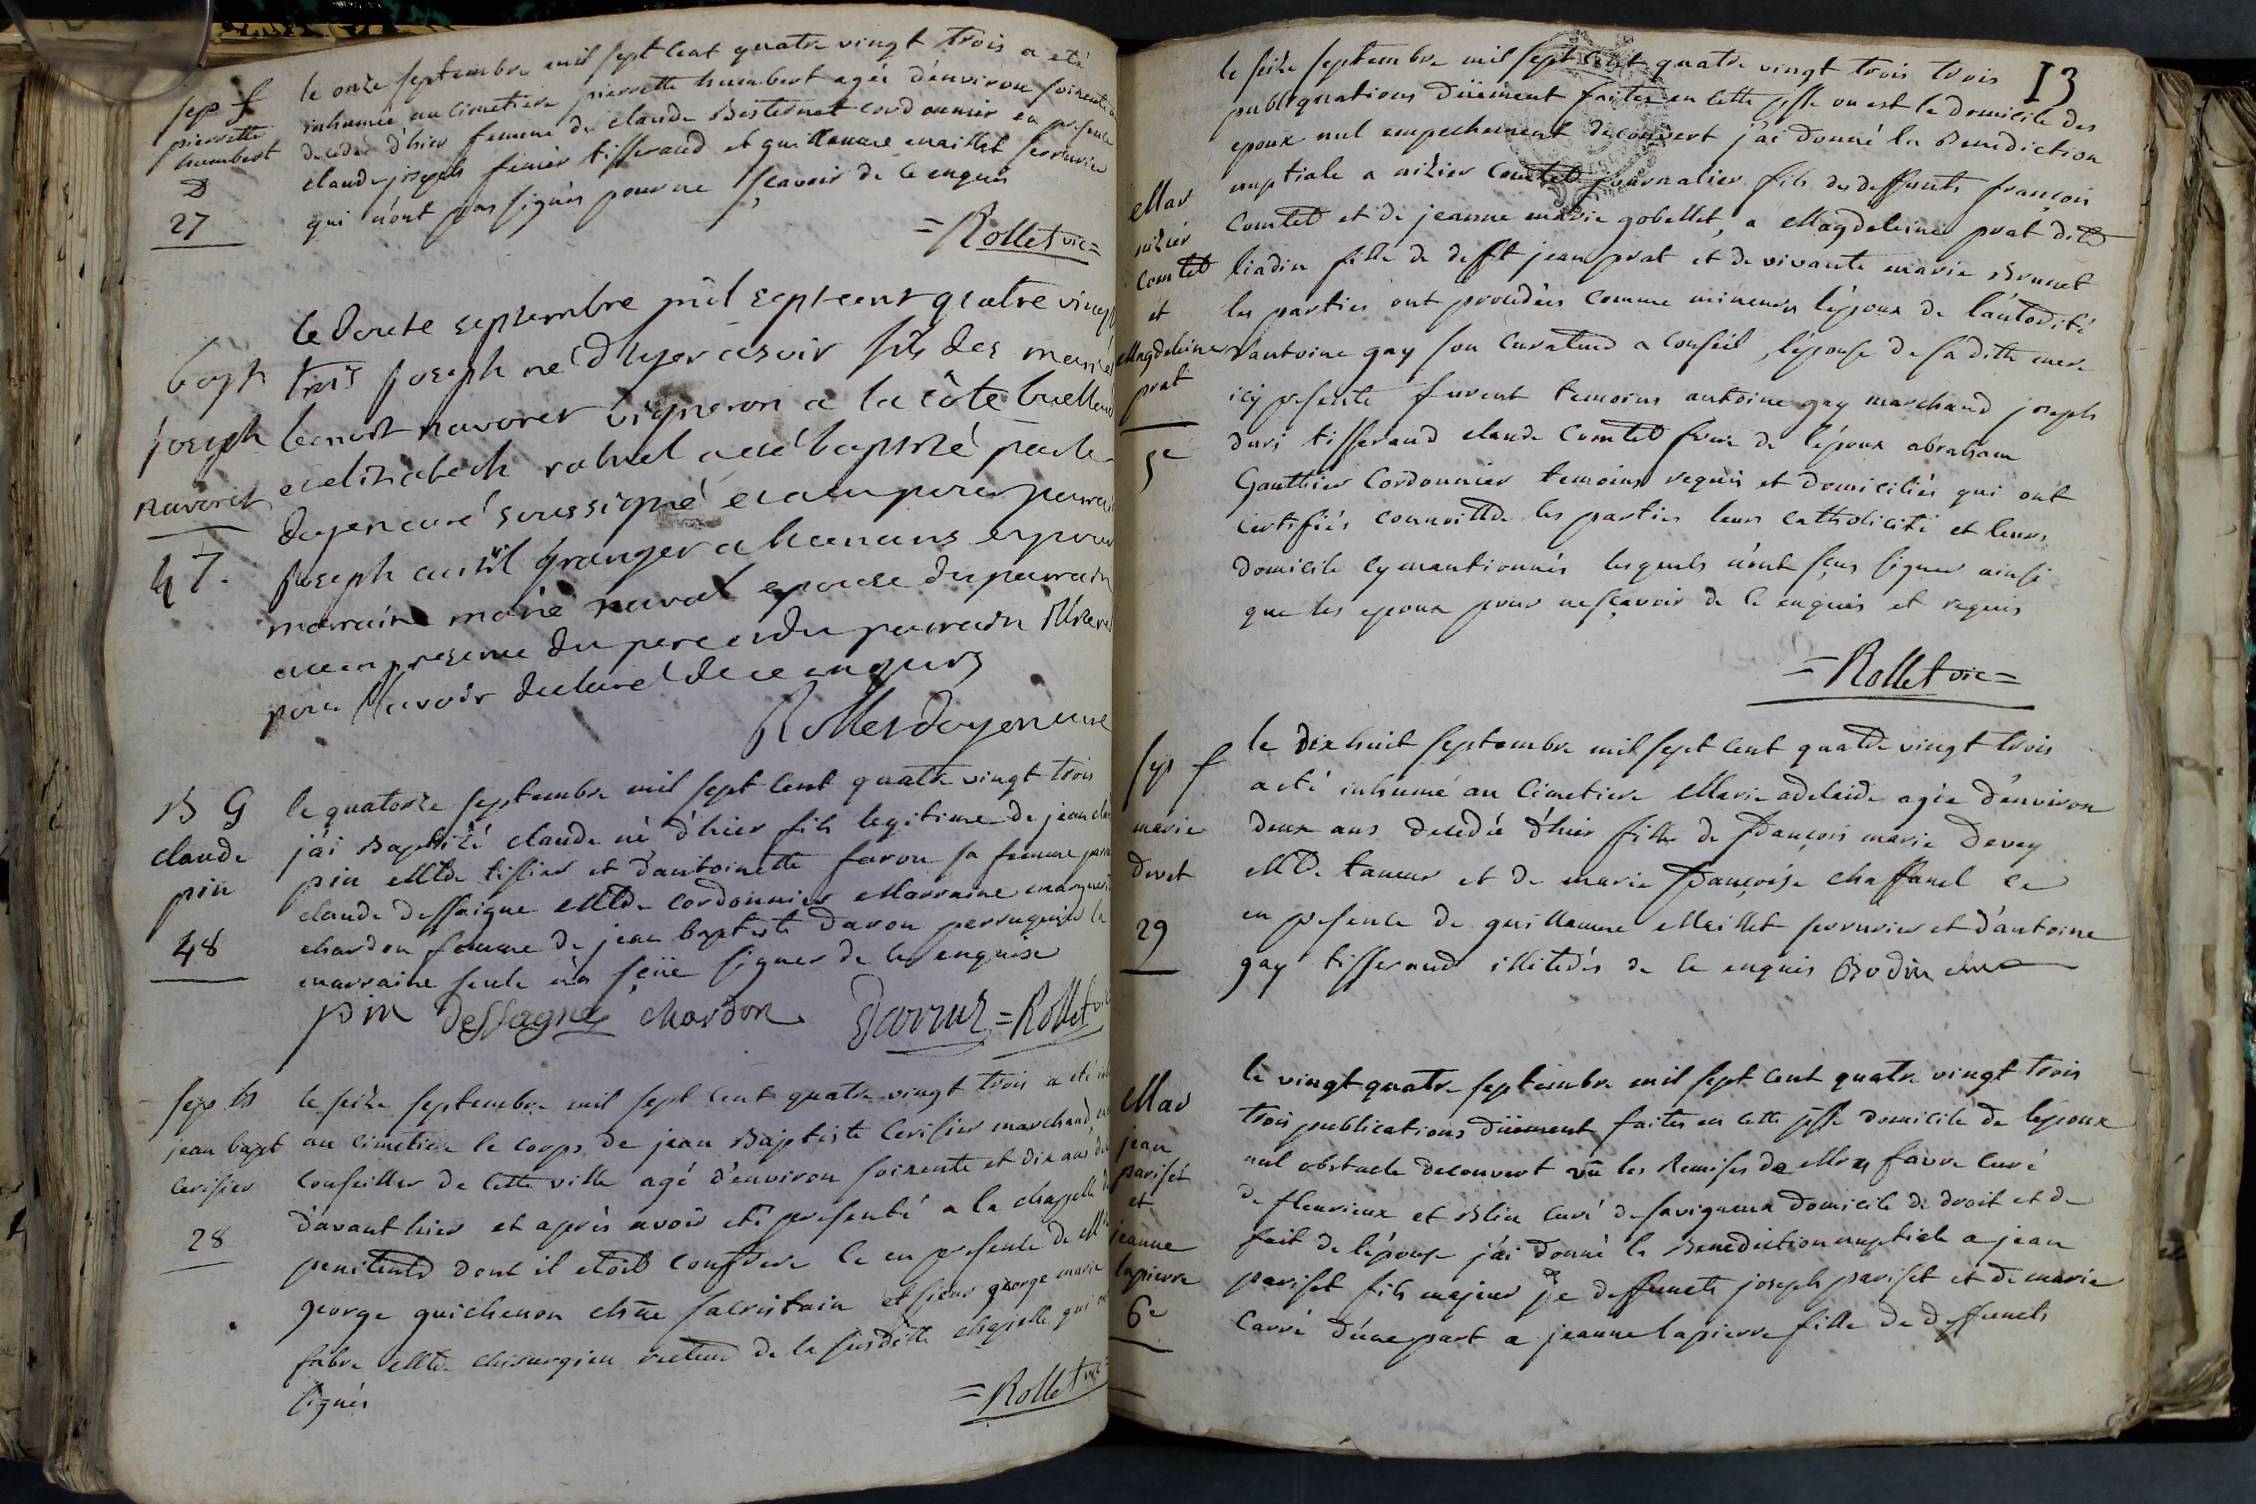 sep f
pierrette
humbert
27
le onze septembre mil sept cent quatre vingt trois a eté
inhumée au cimetiere pierrette humbert agée d'environ soixente
decedée d'hier femme de claude Besternet cordonnier en presence
claude joseph fenier tisserand et guillaume maillet serrurier
qui n'ont pas signés pour ne sçavoir de ce enquis
= Rollet vic =
bapt
joseph
navoret
47.
le douze septembre mil sept cent quatre vingt
trois joseph né d'hyer au soir fils des mariés
benoit navoret vigneron a la côte
et elizabeth a eté baptisé par le
doyen curé soussigné et a eu pour parrain
joseph granger a
marraine marie navoret epouse du parrain
le tout en presence du pere et du parrain
pour sçavoir declaré de ce enquis
Rollet doyen curé
B G
claude
pin
48
le quatorze septembre mil sept cent quatre vingt trois
j'ai Baptisé claude né d'hier fils legitime de jean
pin Mtre tissier et d'antoinette favou sa femme
claude dessaigne Mtre cordonnier Marraine
chardon femme de jean baptiste davou perruquier la
marraine seule n'a sçüe signer de ce enquise
pin dessagne chardon = Rollet vic
sep h
jean bapt
cerisier
28
le seize septembre mil sept cent quatre vingt trois a eté
au cimetiere le corps de jean Baptiste Cerisier marchand
conseiller de cette ville agé d'environ soixente et dix ans
d'avant hier et après avoir eté presenté a la chapelle
penitents dont il etoit confrere ce en presence de
george guichenon chne sacristain et sieur george marie
fabre Mtre chirurgien recteur de la susditte chapelle qui
signés
= Rollet vic =
13
Mar
nizier
comtet
et
Magdeleine
prat
5e
le seize septembre mil sept cent quatre vingt trois trois
publiquations düement faites en cette psse ou est le domicile des
epoux nul empechement decouvert j'ai donné la Benediction
nuptiale a nizier comtet journalier fils des deffunts françois
Comtet et de jeanne marie gobellet, a Magdeleine prat ditte
liadin fille de defft jean prat et de vivante marie Brunet
les parties ont procedées comme mineurs l'époux de l'autorité
d'antoine gay son curateur a conseil, l'épouse de sa ditte mere
icy presente furent temoins antoine gay marchand joseph
duri tisserand claude Comtet frere de l'époux abraham
Gauthier Cordonnier temoins requis et domiciliés qui ont
certifiés connoittre les parties leurs catholicité et leurs
domicile cy mentionnés lesquels n'ont sçus signer ainsi
que les epoux pour ne sçavoir de ce enquis et requis
= Rollet vic =
sep f
marie
devet
29
le dix huit septembre mil sept cent quatre vingt trois
a eté inhumé au Cimetiere Marie adelaide agée d'environ
deux ans decedée d'hier fille de françois marie Devey
Mtre taneur et de marie françoise chaffanel ce
en presence de guillaume Maillet serrurier et d'antoine
gay tisserand illiterés de ce enquis Bodin
Mar
jean
pariset
et
jeanne
lapierre
6e
le vingt quatre septembre mil sept cent quatre vingt trois
trois publications düement faites en cette psse domicile de lepoux
nul obstacle decouvert vü les Remises de Mrs favre curé
de fleurieux et Blin curé de savigneux domicile de droit et de
fait de l'épouse j'ai donné la Benediction nuptiale a jean
pariset fils majeur de deffunts joseph pariset et de marie
Carré d'une part a jeanne lapierre fille de deffunts